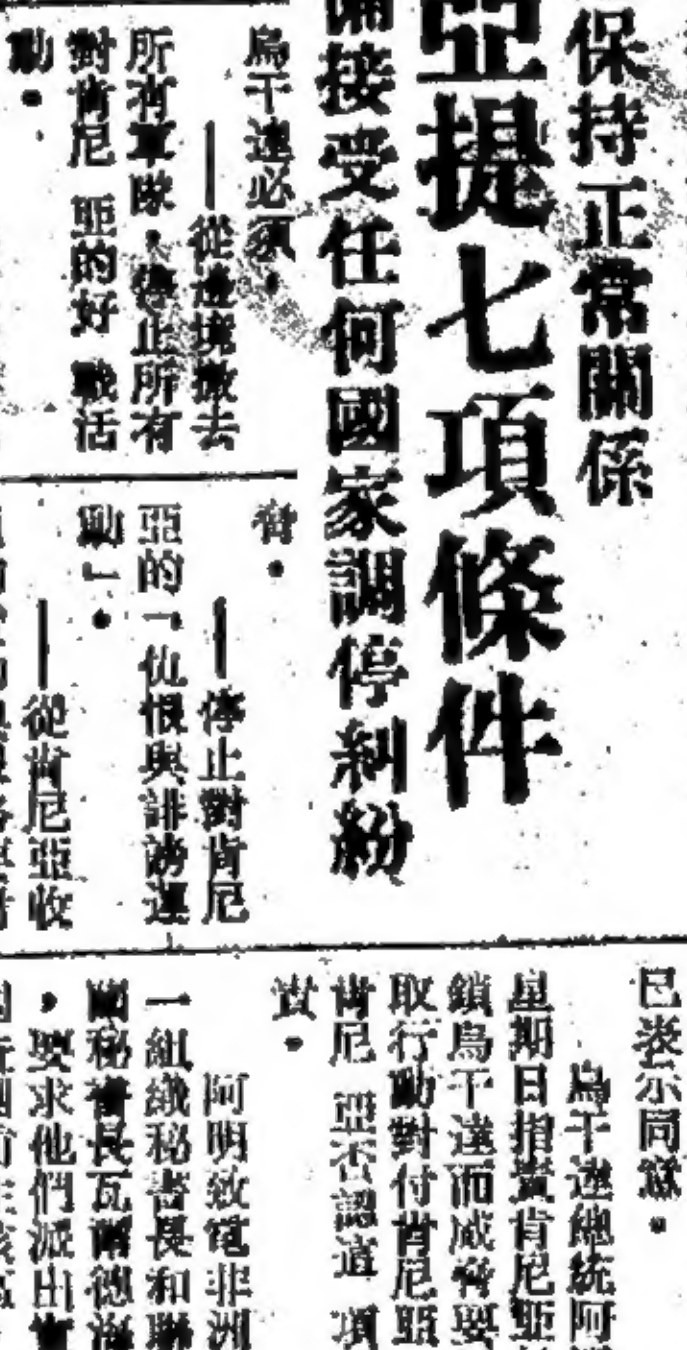 保持正常關係
亞提七項條件
備接受任何國家調停糾紛
烏干達必須，
——從邊境撤去
所有軍隊，停止所有
對肯尼亞的好戰活
動。
脅。
——停止對肯尼
亞的「仇恨與誹謗運
動」。
——從肯尼亞收
已表示同意。
烏干達總統阿
星期日指責肯尼亞
鎖烏干達而威脅要
取行動對付肯尼亞
肯尼亞否認這項
責。
阿明致電非洲
一組織秘書長和聯
國秘書長瓦爾德海
，要求他們派出